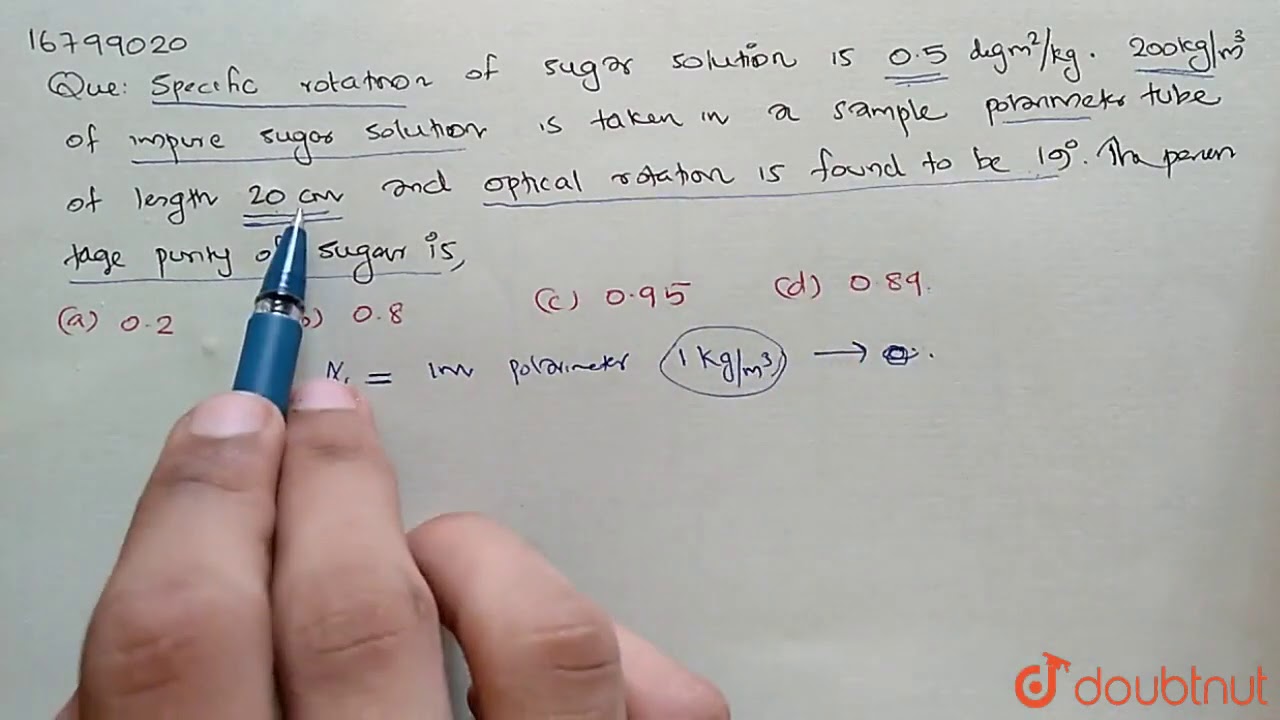 16799020
Que: Specific rotation of sugar solution is 0.5 degm²/kg. 200kg/m³
of impure sugar solution is taken in a sample polarimeter tube
of length 20 cm and optical rotation is found to be 19°. The percen
tage purity of sugar is,
(a) 0.2 b) 0.8 (c) 0.95 (d) 0.89.
= in polarimeter 1 kg/m³ →
doubtnut